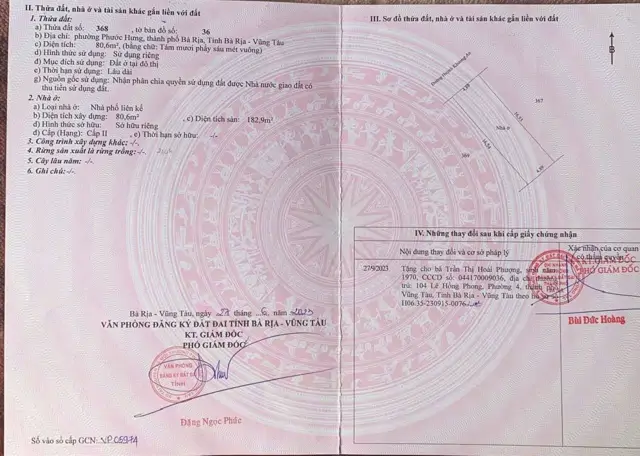 II. Thửa đất, nhà ở và tài sản khác gắn liền với đất
1. Thửa đất:
a) Thửa đất số: 368 , tờ bản đồ số: 36
b) Địa chỉ: phường Phước Hưng, thành phố Bà Rịa, Tỉnh Bà Rịa - Vũng Tàu
c) Diện tích: 80,6m², (bằng chữ: Tám mươi phẩy sáu mét vuông)
d) Hình thức sử dụng: Sử dụng riêng
đ) Mục đích sử dụng: Đất ở tại đô thị
e) Thời hạn sử dụng: Lâu dài
g) Nguồn gốc sử dụng: Nhận phân chia quyền sử dụng đất được Nhà nước giao đất có
thu tiền sử dụng đất.
2. Nhà ở:
a) Loại nhà ở: Nhà phố liên kế
b) Diện tích xây dựng: 80,6m² , c) Diện tích sàn: 182,9m²
d) Hình thức sở hữu: Sở hữu riêng
đ) Cấp (Hạng): Cấp II , e) Thời hạn sở hữu: -/-
3. Công trình xây dựng khác: -/-
4. Rừng sản xuất là rừng trồng: -/-
5. Cây lâu năm: -/-
6. Ghi chú: -/-
Bà Rịa - Vũng Tàu, ngày tháng năm 2023
VĂN PHÒNG ĐĂNG KÝ ĐẤT ĐAI TỈNH BÀ RỊA - VŨNG TÀU
KT. GIÁM ĐỐC
PHÓ GIÁM ĐỐC
VĂN PHÒNG
ĐĂNG KÝ ĐẤT ĐAI
TỈNH
Đặng Ngọc Phúc
Số vào sổ cấp GCN: VP05974
III. Sơ đồ thửa đất, nhà ở và tài sản khác gắn liền với đất
B
Đường Huỳnh Khương An
367
Nhà ở
369
IV. Những thay đổi sau khi cấp giấy chứng nhận
Nội dung thay đổi và cơ sở pháp lý
Xác nhận của cơ quan
có thẩm quyền
27/9/2023
Tặng cho bà Trần Thị Hoài Phượng, sinh năm
1970, CCCD số: 044170009036, địa chỉ
trú: 104 Lê Hồng Phong, Phường 4, thành
Vũng Tàu, Tỉnh Bà Rịa - Vũng Tàu theo hồ sơ số
H06.35-230915-0076
KT. GIÁM ĐỐC
PHÓ GIÁM ĐỐC
Bùi Đức Hoàng